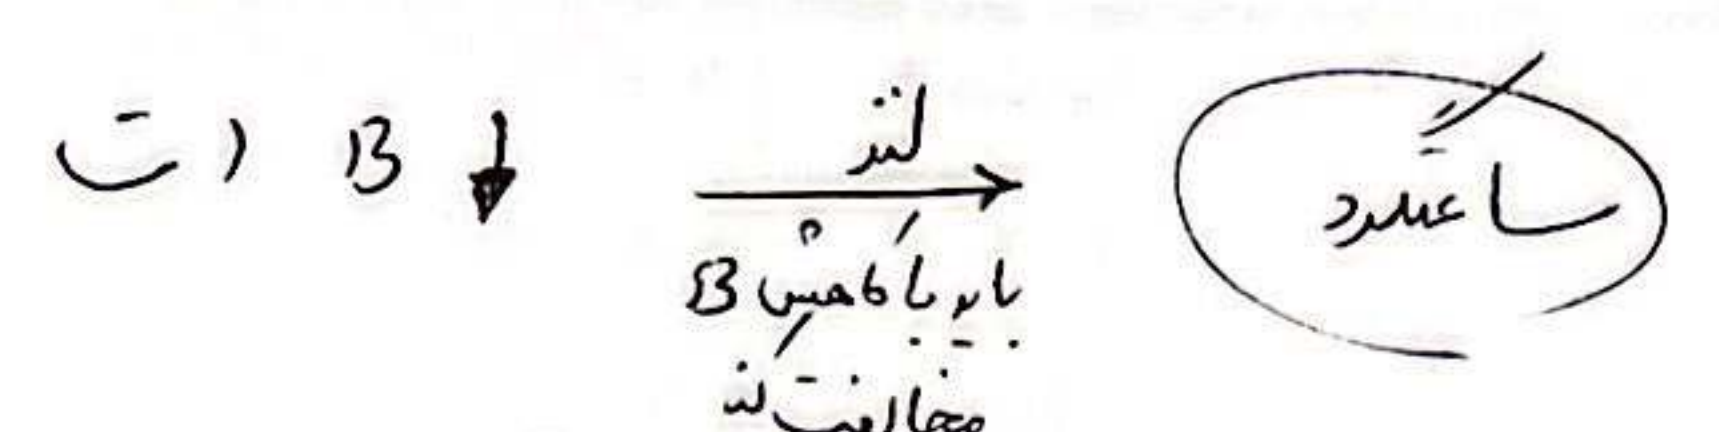 ت) B ↓ لنز → ساعتگرد
باید با کاهش B
مخالفت کند